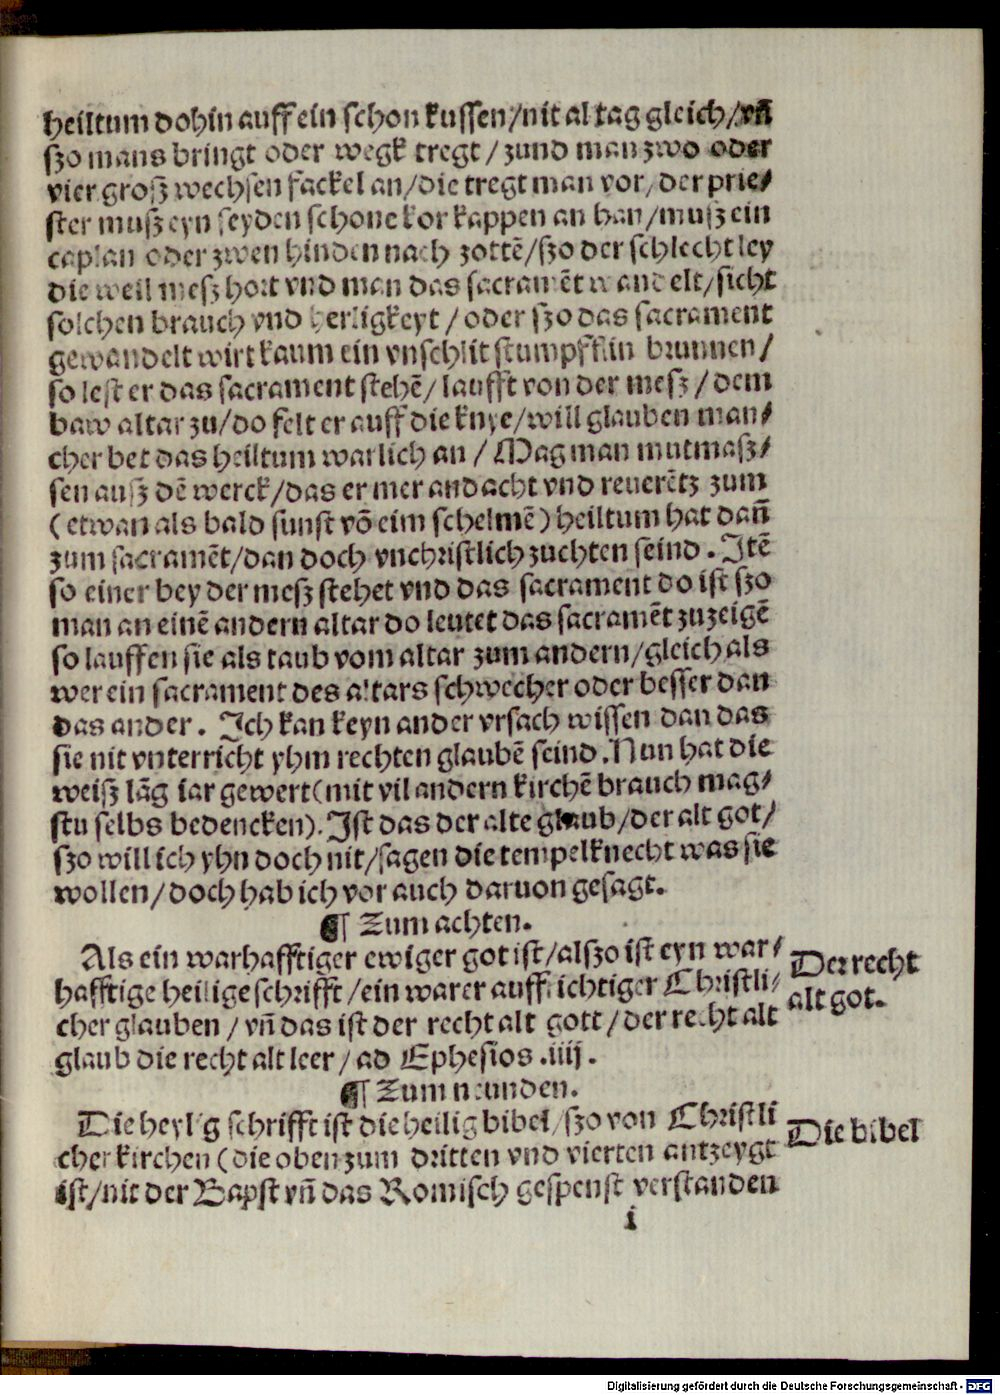 heiltum dohin auff ein schon kussen/nit al tag gleich/vn̄
szo mans bringt oder wegk tregt/zund man zwo oder
vier grosz wechsen fackel an/die tregt man vor/der prie⸗
ster musz eyn seyden schone kor kappen an han/musz ein
caplan oder zwen hinden nach zottē/szo der schlecht ley
die weil mesz hort vnd man das sacramēt wandelt/sicht
solchen brauch vnd herligkeyt/oder szo das sacrament
gewandelt wirt kaum ein vnschlit stumpfflin brunnen/
so lest er das sacrament stehē/laufft von der mesz/dem
baw altar zu/do felt er auff die knye/will glauben man⸗
cher bet das heiltum warlich an/Mag man mutmasz⸗
sen ausz dē werck/das er mer andacht vnd reuerētz zum
(etwan als bald sunst vō eim schelmē) heiltum hat dan̄
zum sacramēt/dan doch vnchristlich zuchten seind. Itē
so einer bey der mesz stehet vnd das sacrament do ist szo
man an einē andern altar do leutet das sacramēt zuzeigē
so lauffen sie als taub vom altar zum andern/gleich als
wer ein sacrament des altars schwecher oder besser dan
das ander. Ich kan keyn ander vrsach wissen dan das
sie nit vnterricht yhm rechten glaubē seind. Nun hat die
weisz lāg iar gewert(mit vil andern kirchē brauch mag⸗
stu selbs bedencken). Ist das der alte glaub/der alt got/
szo will ich yhn doch nit/sagen die tempelknecht was sie
wollen/doch hab ich vor auch daruon gesagt.
¶ Zum achten.
Als ein warhafftiger ewiger got ist/alszo ist eyn war⸗
hafftige heilige schrifft/ein warer auffrichtiger Christli⸗
cher glauben/vn̄ das ist der recht alt gott/der recht alt
glaub die recht alt leer/ad Ephesios .iiij.
Der recht
alt got.
¶ Zum neunden.
Die heylig schrifft ist die heilig bibel/szo von Christli
cher kirchen (die oben zum dritten vnd vierten antzeygt
ist/nit der Bapst vn̄ das Romisch gespenst verstanden
Die bibel
i
Digitalisierung gefördert durch die Deutsche Forschungsgemeinschaft - DFG